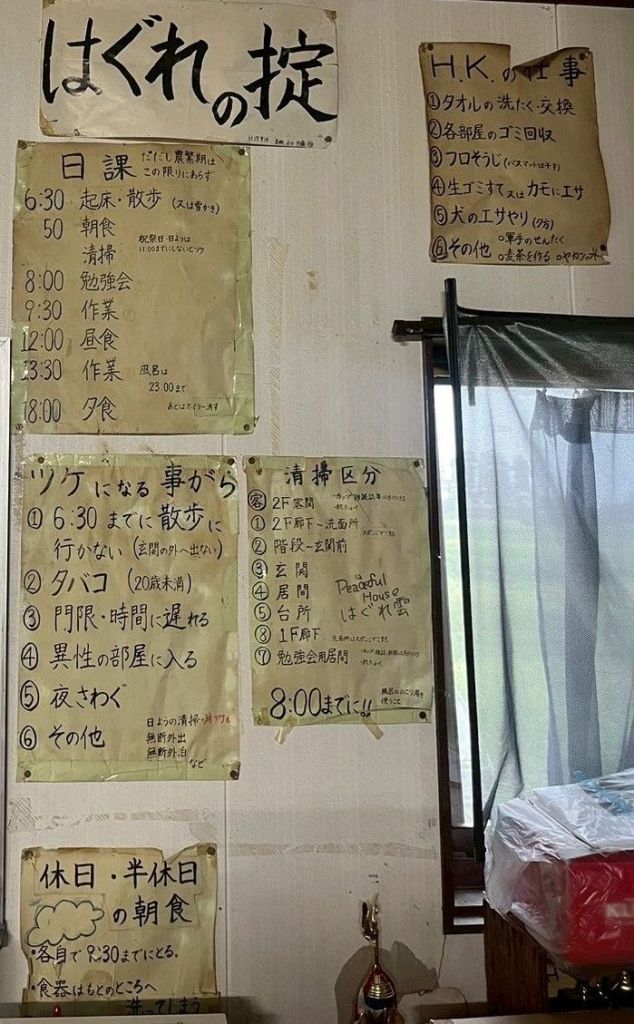 はぐれの掟
日課 ただし農繁期は
この限りにあらず
6:30 起床・散歩 (又は雪かき)
50 朝食
清掃 祝祭日・日ようは
11:00までにしないとツケ
8:00 勉強会
9:30 作業
12:00 昼食
13:30 作業 風呂は
23:00まで
18:00 夕食 あとはボイラー消す
H.K.の仕事
①タオルの洗たく・交換
②各部屋のゴミ回収
③フロそうじ(バスマットは干す)
④生ゴミすて又はカモにエサ
⑤犬のエサやり(夕方)
⑥その他 ○軍手のせんたく
○麦茶を作る ○ヤカンの水
ツケになる事がら
①6:30までに散歩に
行かない(玄関の外へ出ない)
②タバコ (20歳未満)
③門限・時間に遅れる
④異性の部屋に入る
⑤夜さわぐ
⑥その他 日ようの清掃・
無断外出
無断外泊
など
清掃区分
客 2F客間
①2F廊下~洗面所
②階段~玄関前
③玄関
④居間
⑤台所
⑧1F廊下
⑦勉強会用居間
Peaceful
House
はぐれ雲
8:00までに!!
風呂ののこり湯を
使うこと
休日・半休日
の朝食
・各自で9:30までにとる.
・食器はもとのところへ
洗ってしまう